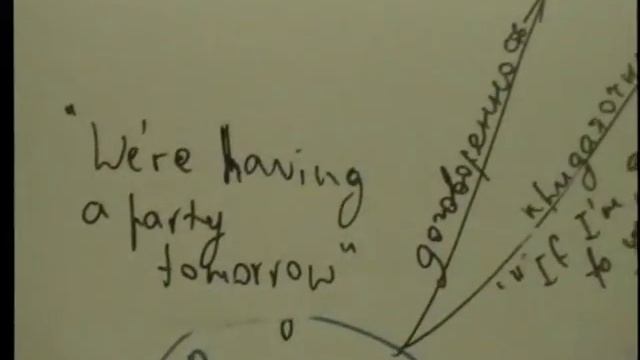 "We're having
a party
tomorrow"
договоренность
"If I'm
to